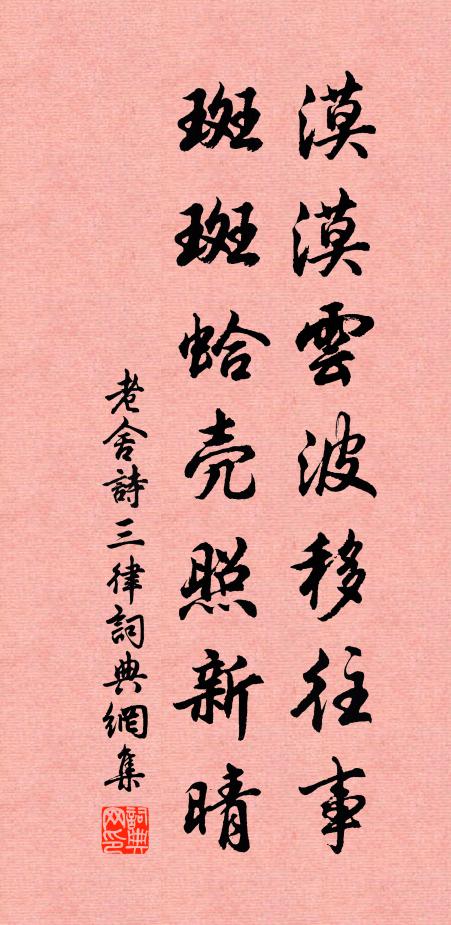 漠漠雲波移往事
斑斑蛤壳照新晴
老舍詩三律詞典網集
詞典网印